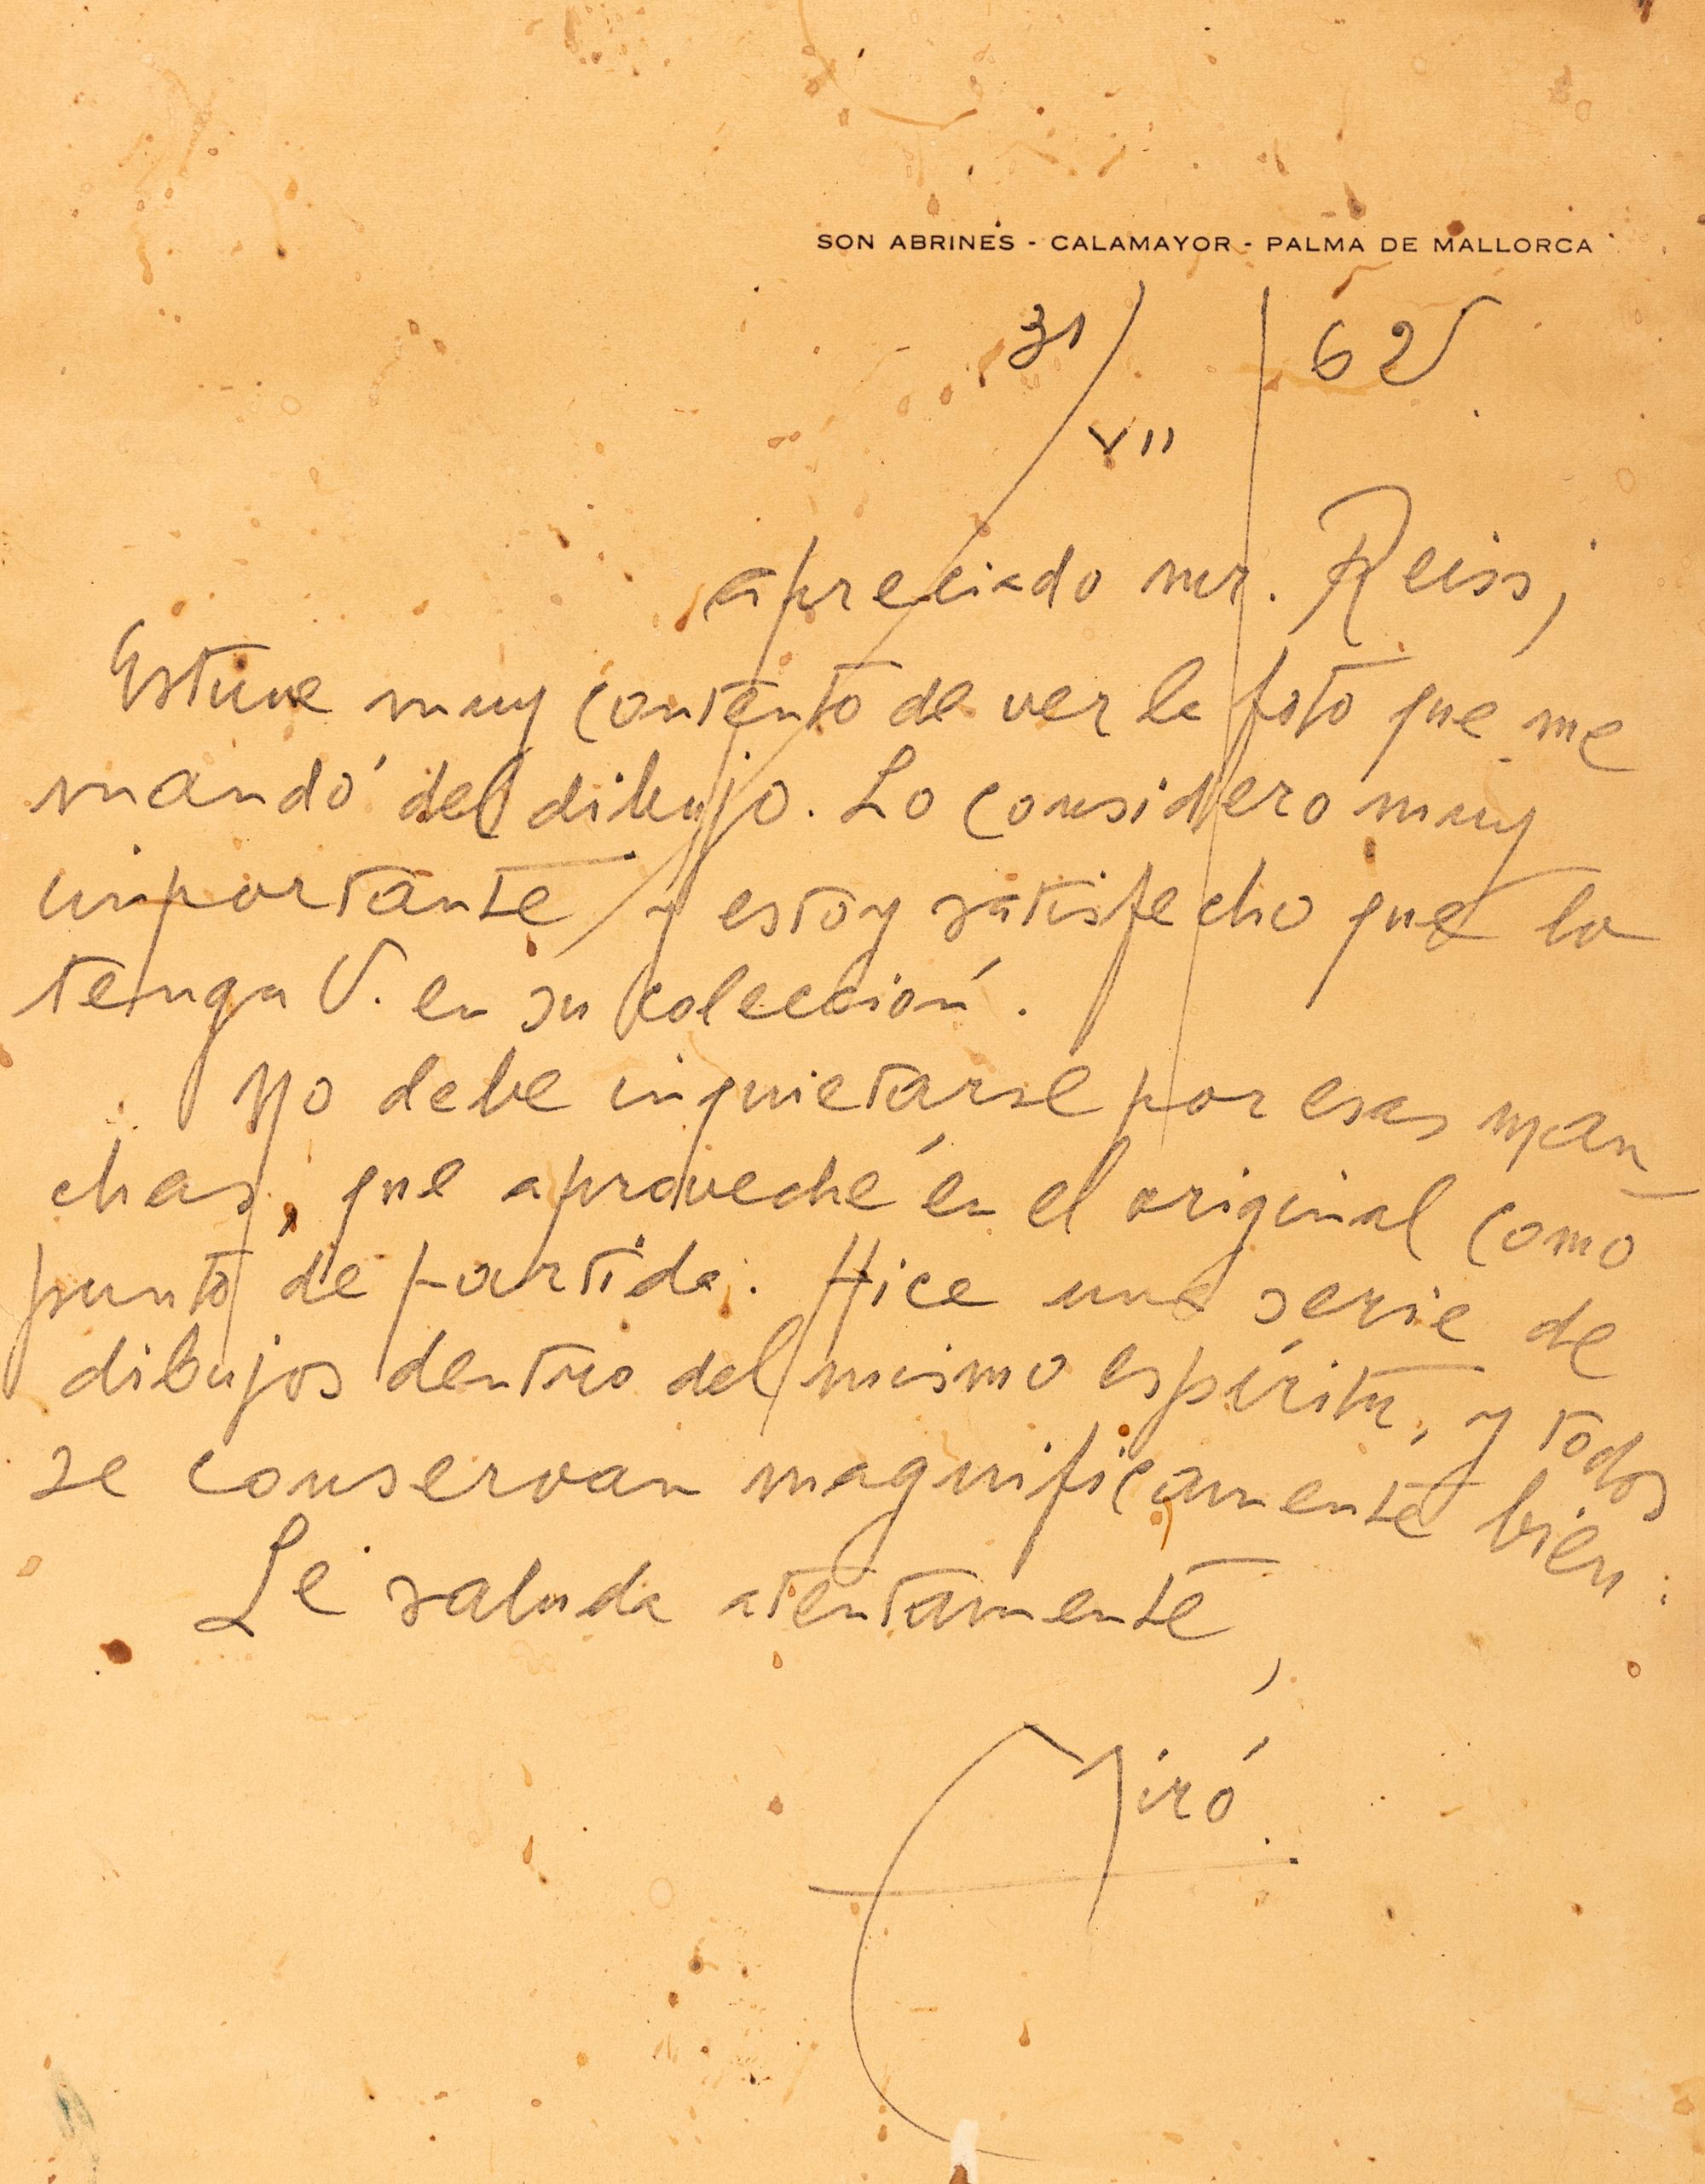 SON ABRINES - CALAMAYOR - PALMA DE MALLORCA
31/VII/62
apreciado mr. Reiss,
Estuve muy contento de ver la foto que me
mandó del dibujo. Lo considero muy
importante y estoy satisfecho que lo
tenga V. en su colección.
No debe inquietarse por esas man-
chas, que aproveché en el original como
punto de partida. Hice una serie de
dibujos dentro del mismo espíritu, y todos
se conservan magnificamente bien.
Le saluda atentamente,
Miró.